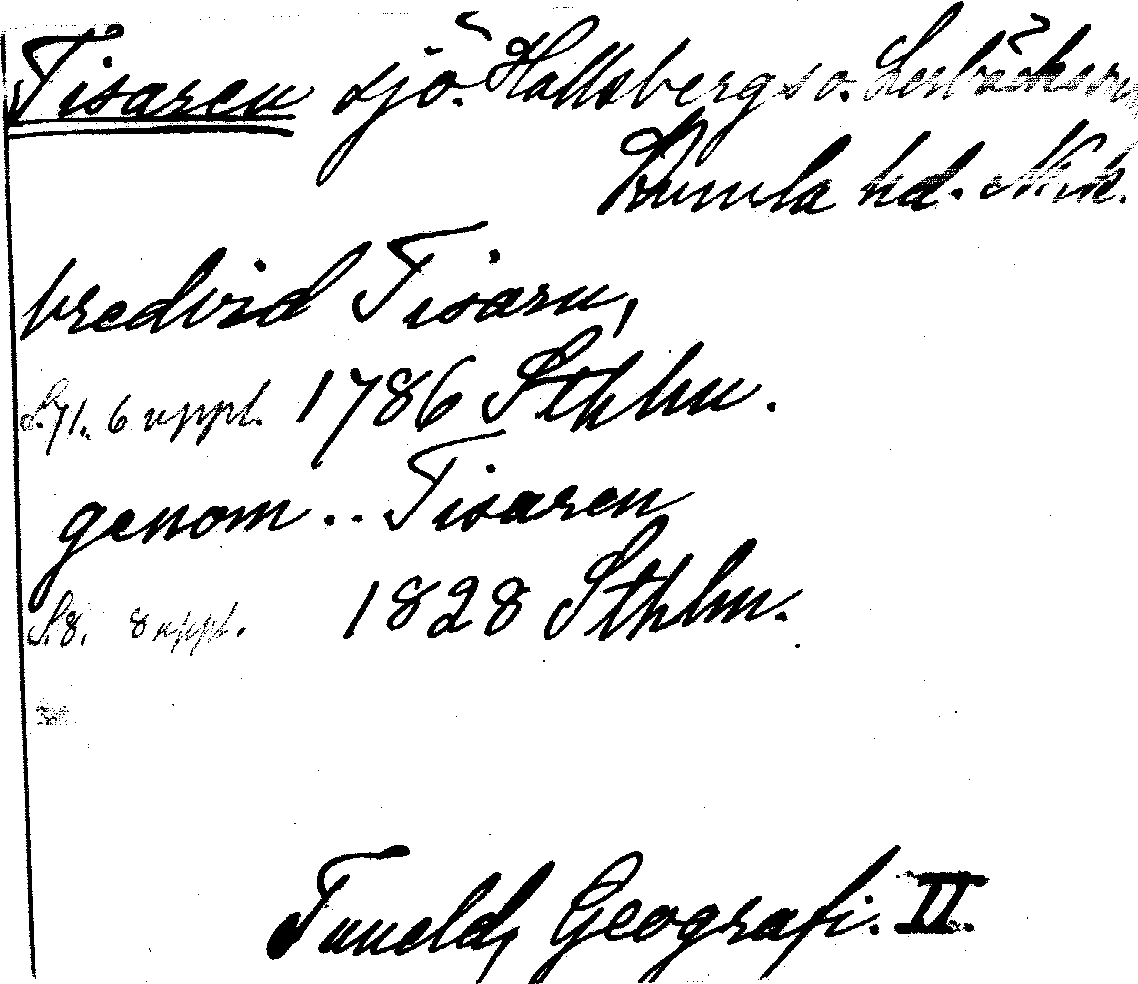 Tisaren sjö. Hallsbergs o. Lerbäcks sn,
Kumla hd. Nrk.
bredvid Tisarn,
S. 71. 6 uppl. 1786 Sthlm.
genom .. Tisaren
S. 8. 8 uppl. 1828 Sthlm.
Tuneld, Geografi. II.